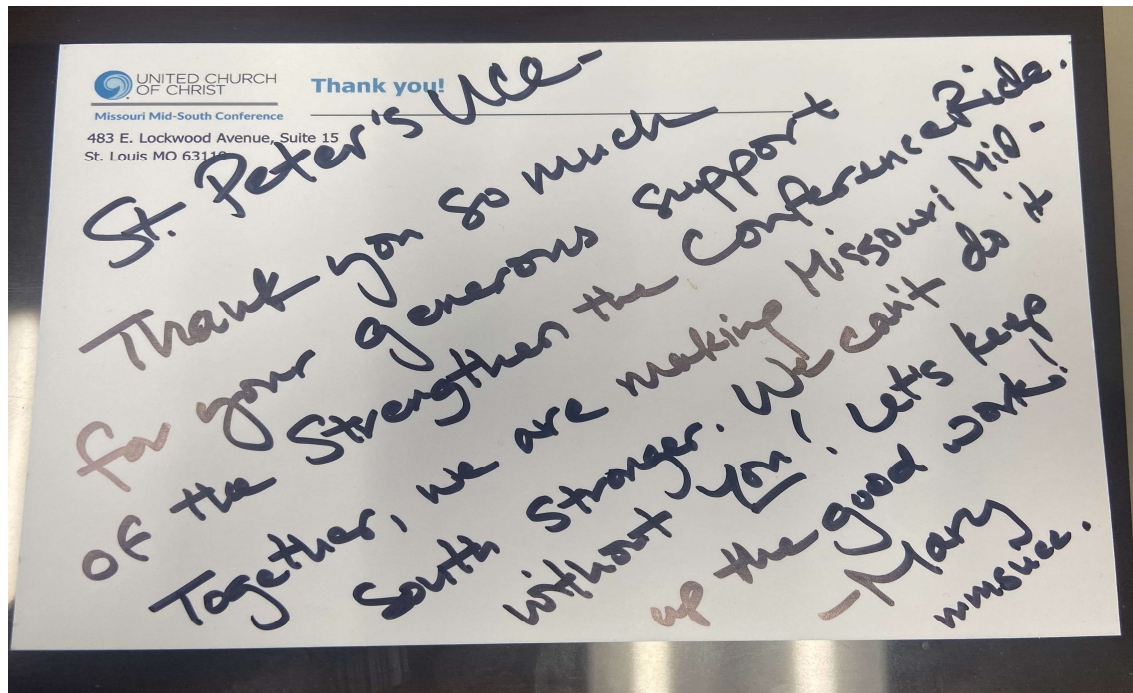 UNITED CHURCH
OF CHRIST
Missouri Mid-South Conference
483 E. Lockwood Avenue, Suite 15
St. Louis MO 63119
Thank you!
St. Peter's UCC-
Thank you so much
for your generous support
of the Strengthen the Conference Ride.
Together, we are making Missouri Mid-
South stronger. We can't do it
without you! Let's keep
up the good work!
-Mary
mmsucc.